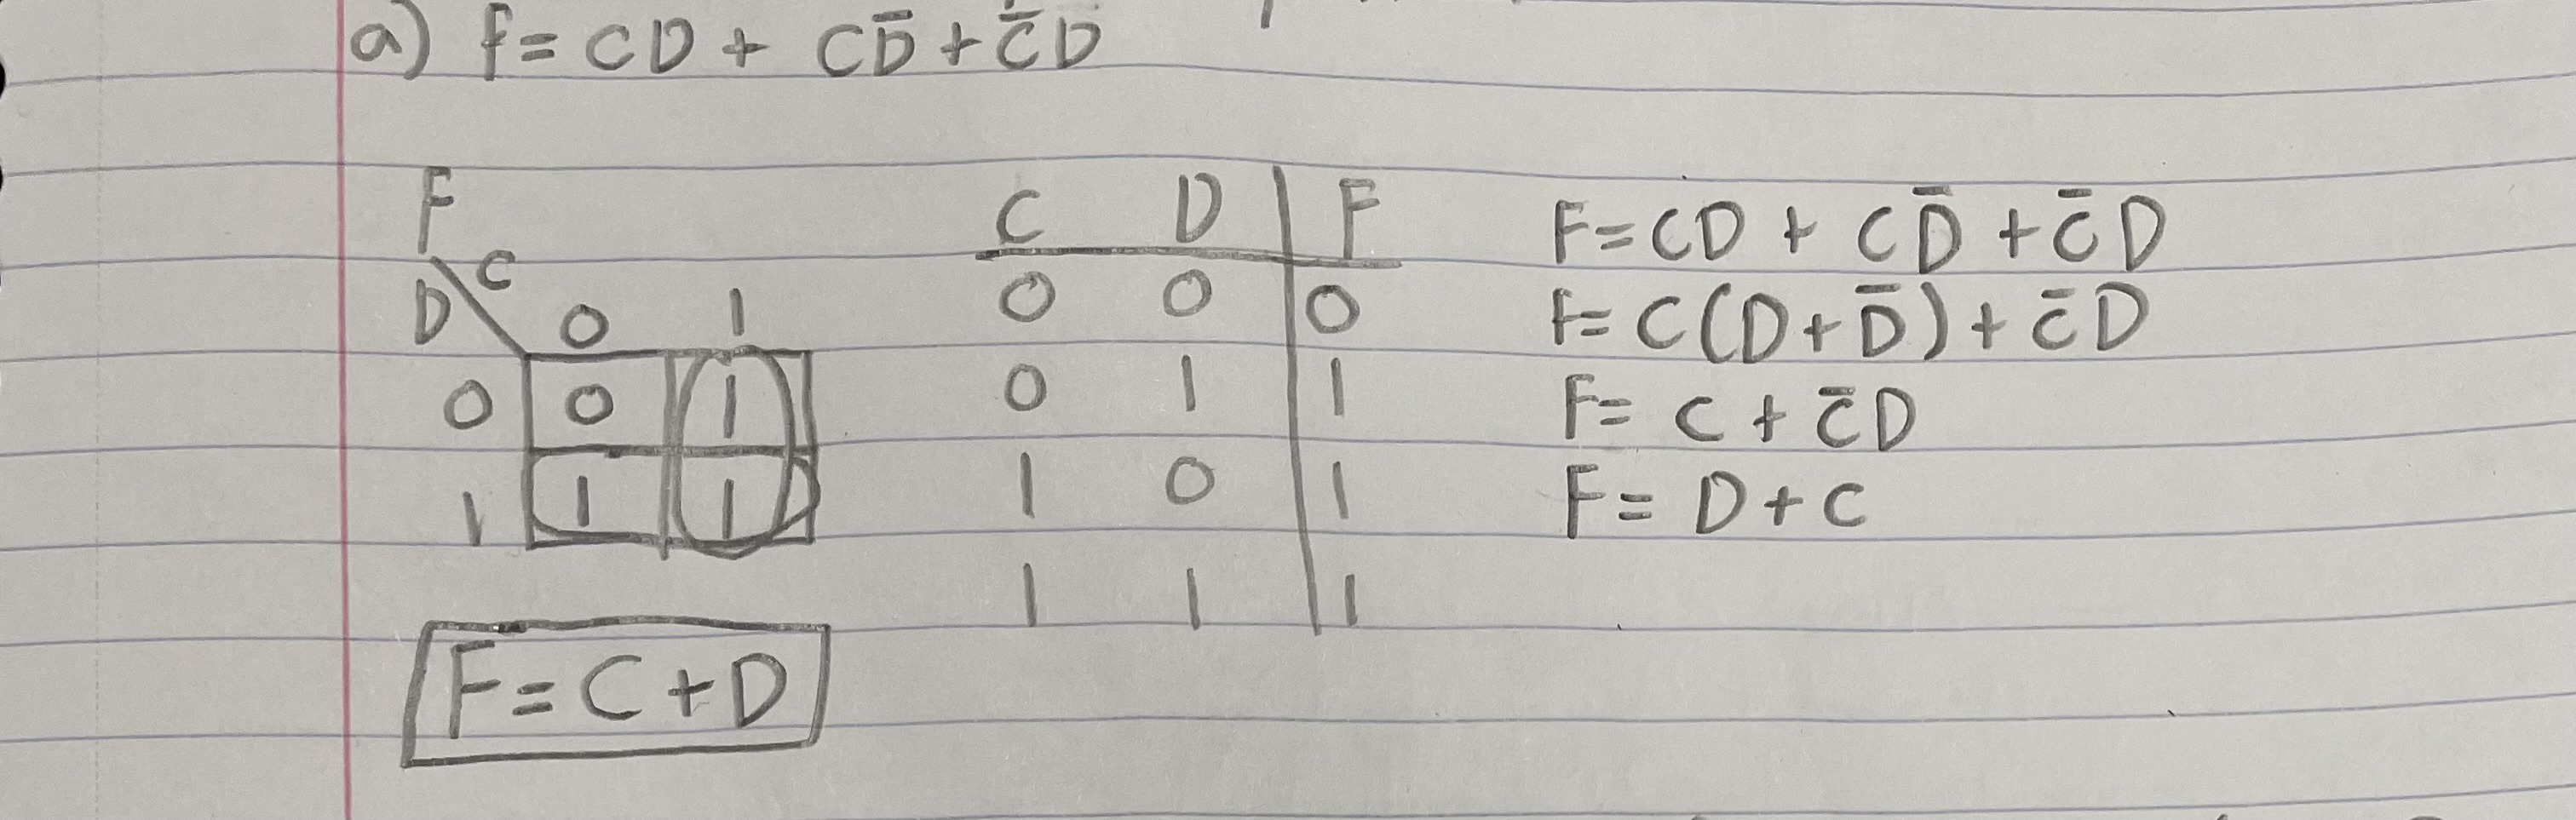 a) F= CD + CD̅ + C̅D
F
C
D
0 1
0 0 1
1 1 1
F=C+D
C D F
0 0 0
0 1 1
1 0 1
1 1 1
F=CD + CD̅ + C̅D
F= C(D+D̅) + C̅D
F= C + C̅D
F= D+C